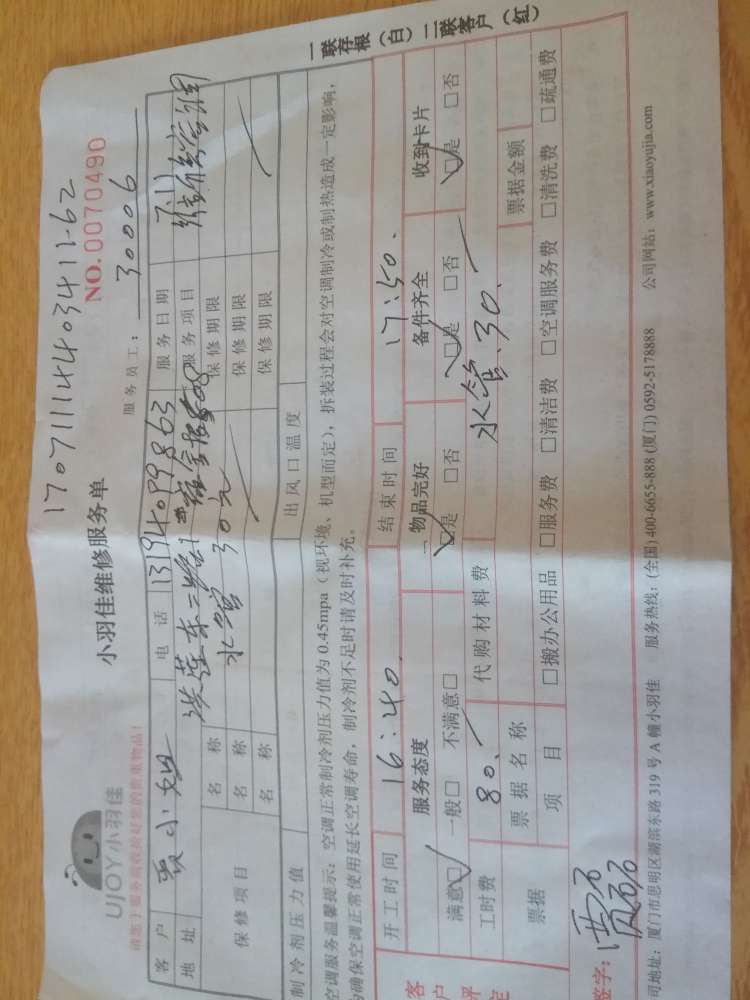 17071114403411-62
UJOY小羽佳
请您于服务前收拾好您的贵重物品！
小羽佳维修服务单
NO.0070490
服务员工： 30006
客户 小姐 电话 13194099863 服务日期 7.11
地址 洪莲东二路 服务项目 维修空调
保修项目 名称 水管 30元 保修期限
名称 保修期限
名称 保修期限
制冷剂压力值 出风口温度
空调服务温馨提示：空调正常制冷剂压力值为 0.45mpa（视环境、机型而定），拆装过程会对空调制冷或制热造成一定影响，
为确保空调正常使用延长空调寿命，制冷剂不足时请及时补充。
开工时间 16:40. 结束时间 17:50.
客户评定 服务态度 物品完好 备件齐全 收到卡片
满意☑ 一般□ 不满意□ ☑是 □否 ☑是 □否 ☑是 □否
工时费 80.- 代购材料费 水管.30.-
票据 票据名称 票据金额
项目 □搬办公用品 □服务费 □清洁费 □空调服务费 □清洗费 □疏通费
签字：
司地址：厦门市思明区湖滨东路 319 号 A 幢小羽佳 服务热线：(全国) 400-6655-888 (厦门) 0592-5178888 公司网站：www.xiaoyujia.com
一联存根（白）二联客户（红）